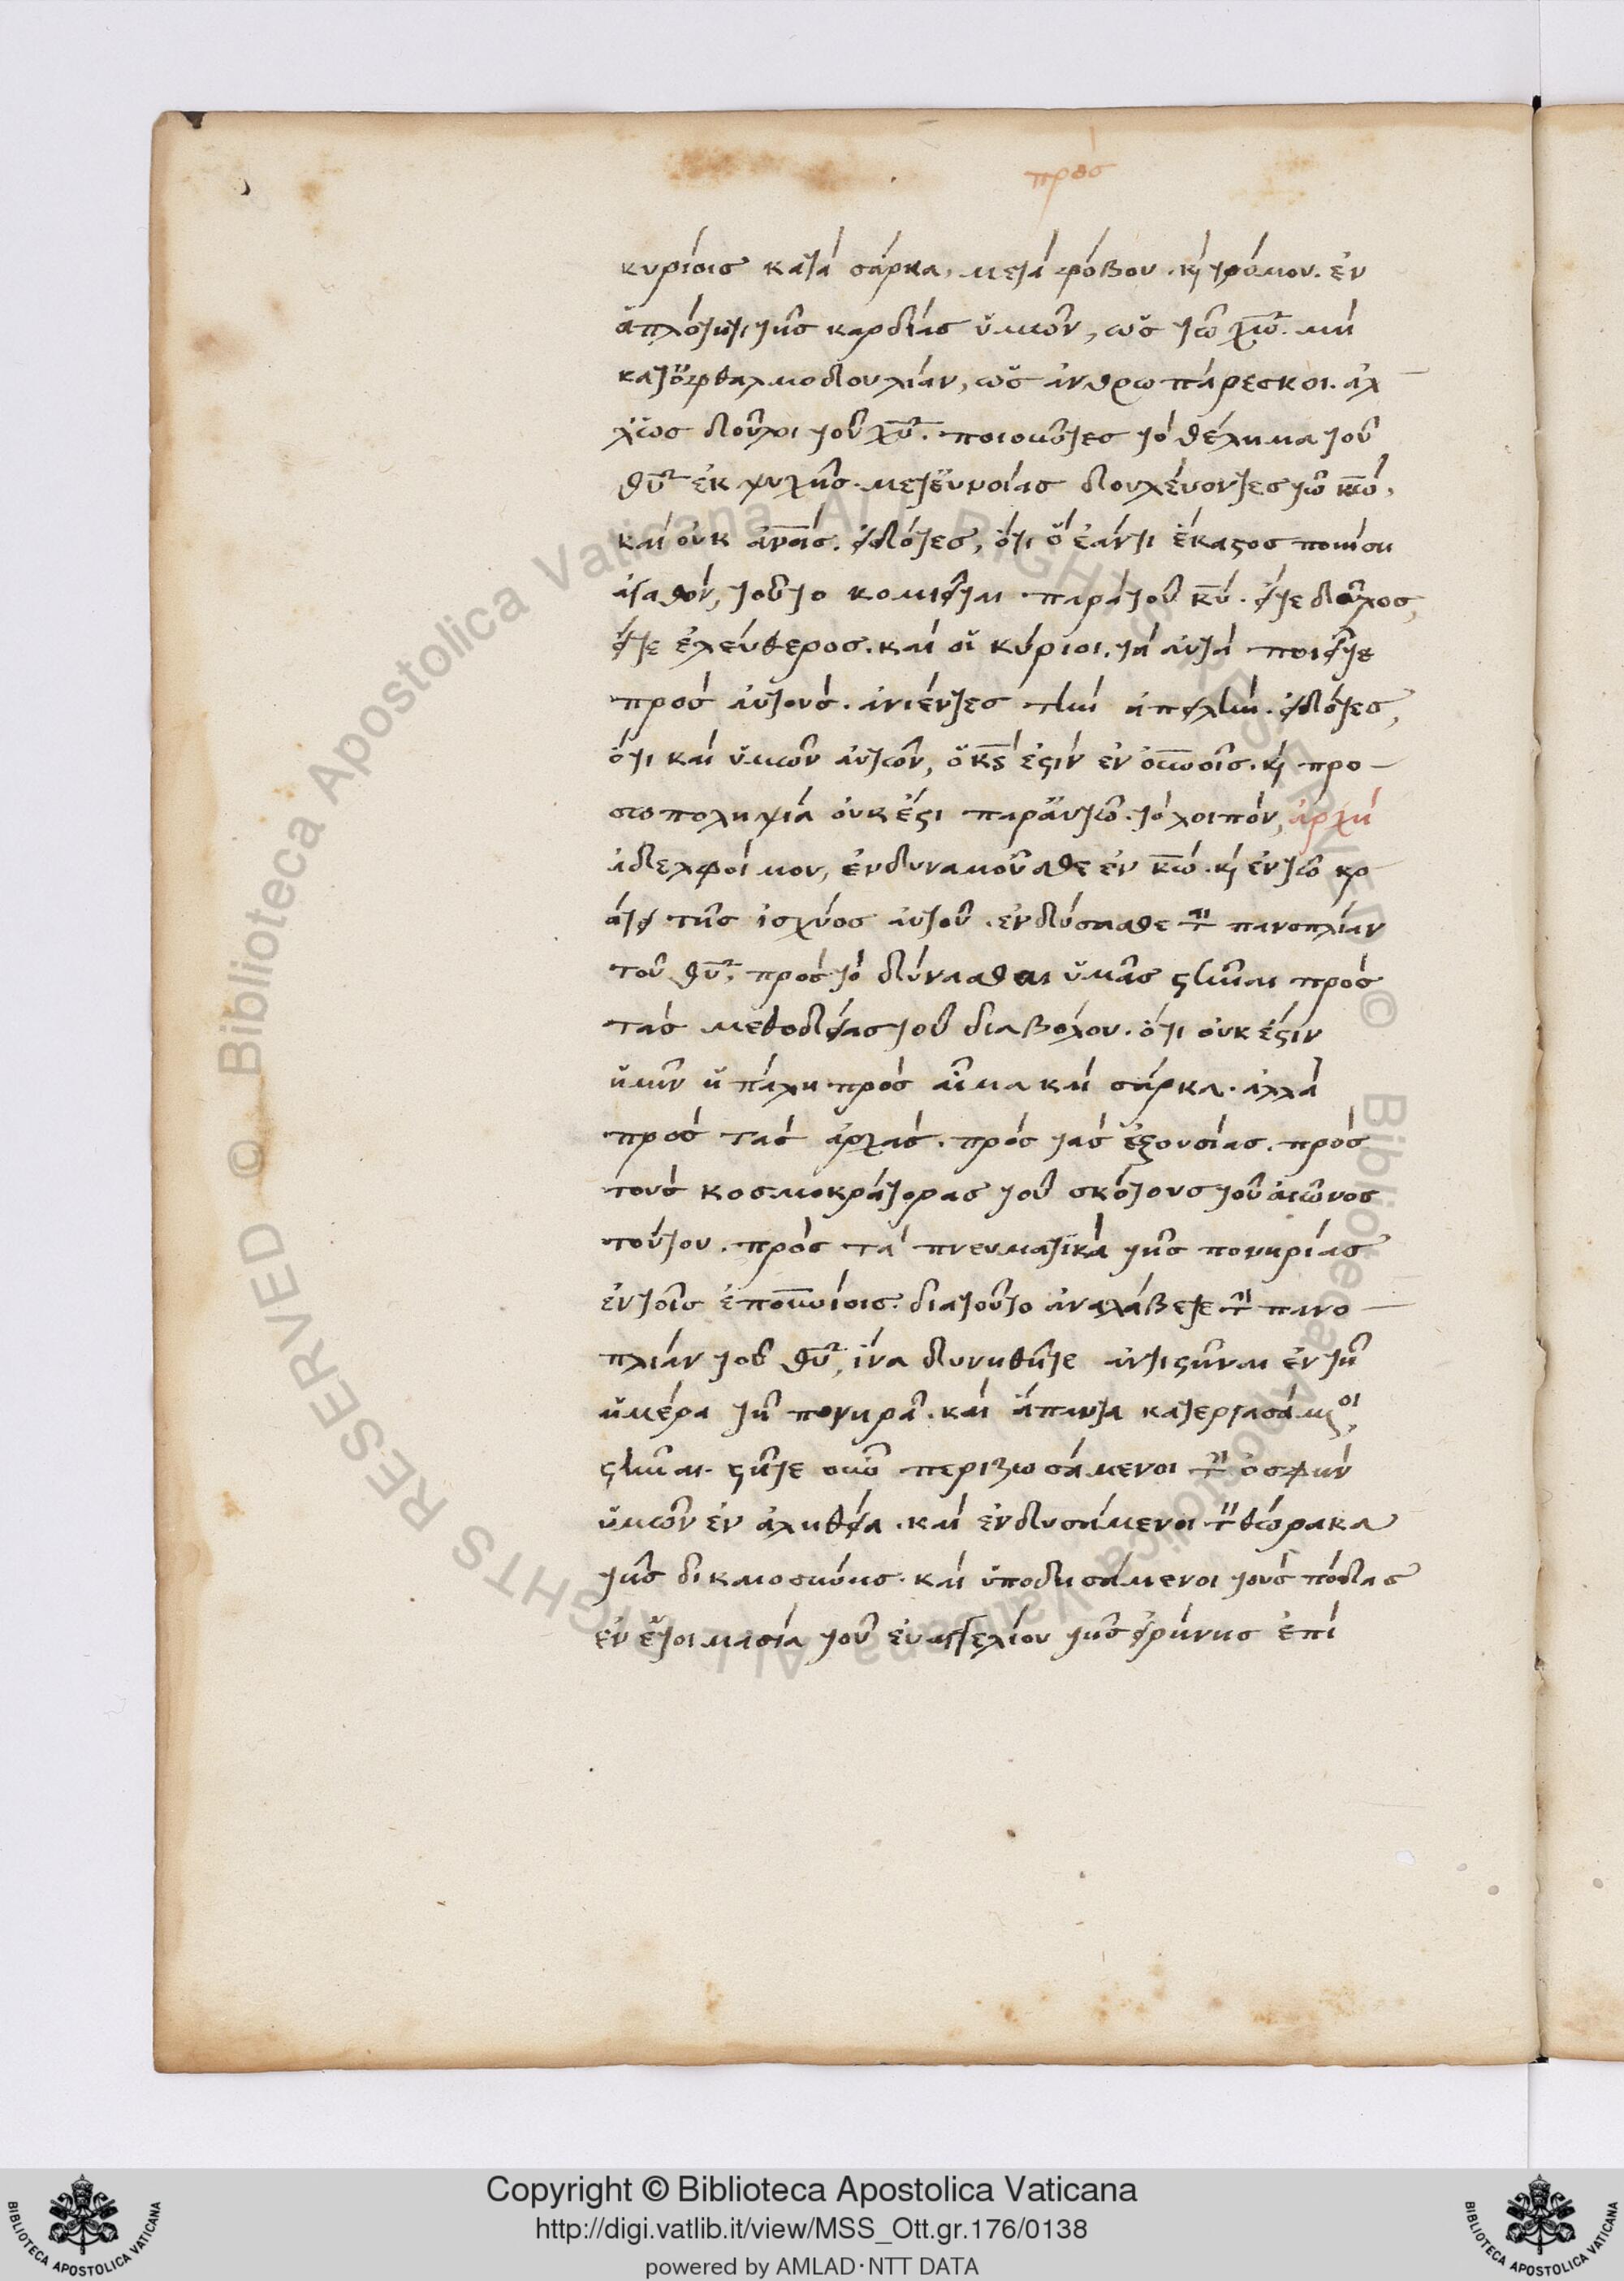 πρὸς
κυρίοις κατὰ σάρκα, μετὰ φόβου. κὶ τρόμου. ἐν
ἁπλότητι τῆς καρδίας ὑμῶν, ὡς τῶ χ̅ω̅. μὴ
κατ᾽ ὀφθαλμοδουλίαν, ὡς ἀνθρωπάρεσκοι. ἀλ
λ᾽ ὡς δοῦλοι τοῦ χ̅υ̅. ποιοῦντες τὸ θέλημα τοῦ
θ̅υ̅ ἐκ ψυχῆς. μετ᾽ εὐνοίας δουλεύοντες τῶ κ̅ω̅,
καὶ οὐκ ἀν̅οις. εἰδότες, ὅτι ὃ ἐάν τι ἕκαστος ποιήση
ἀγαθὸν, τοῦτο κομιεῖται παρὰ τοῦ κ̅υ̅. εἴτε δοῦλος,
εἴτε ἐλεύθερος. καὶ οἱ κύριοι. τὰ αὐτὰ ποιεῖτε
πρὸς αὐτοὺς. ἀνιέντες τὴν ἀπειλήν. εἰδότες,
ὅτι καὶ ὑμῶν αὐτῶν, ὁ κ̅ς̅ ἐστὶν ἐν οὐ̅νοῖς. κὶ προ-
σωποληψία οὐκ ἔστι παρ᾽ αὐτῶ. τὸ λοιπὸν, ἀρχὴ
ἀδελφοί μου, ἐνδυναμοῦσθε ἐν κ̅ω̅. κὶ ἐν τῶ κρ-
άτει τῆς ἰσχύος αὐτοῦ. ἐνδύσασθε τὴν πανοπλίαν
τοῦ θ̅υ̅, πρὸς τὸ δύνασθαι ὑμᾶς στῆναι πρὸς
τὰς μεθοδείας τοῦ διαβόλου. ὅτι οὐκ ἔστιν
ἡμῖν ἡ πάλη πρὸς αἷμα καὶ σάρκα. ἀλλὰ
πρὸς τὰς ἀρχὰς. πρὸς τὰς ἐξουσίας. πρὸς
τοὺς κοσμοκράτορας τοῦ σκότους τοῦ αἰῶνος
τούτου. πρὸς τὰ πνευματικὰ τῆς πονηρίας
ἐν τοῖς ἐπου̅νίοις. διατοῦτο ἀναλάβετε τὴν πανο-
πλίαν τοῦ θ̅υ̅, ἵνα δυνηθῆτε ἀντιστῆναι ἐν τῆ
ἡμέρα τῆ πονηρᾶ. καὶ ἅπαντα κατεργασάμενοι,
στῆναι. στῆτε οὖν περιζωσάμενοι τὴν ὀσφὺν
ὑμῶν ἐν ἀληθεία. καὶ ἐνδυσάμενοι τὸν θώρακα
τῆς δικαιοσύνης. καὶ ὑποδησάμενοι τοὺς πόδας
ἐν ἑτοιμασία τοῦ εὐαγγελίου τῆς εἰρήνης ἐπὶ
© Biblioteca Apostolica Vaticana ALL RIGHTS RESERVED
© Biblioteca Apostolica Vaticana ALL RIGHTS RESERVED
Copyright © Biblioteca Apostolica Vaticana
http://digi.vatlib.it/view/MSS_Ott.gr.176/0138
powered by AMLAD·NTT DATA
BIBLIOTECA APOSTOLICA VATICANA
BIBLIOTECA APOSTOLICA VATICANA